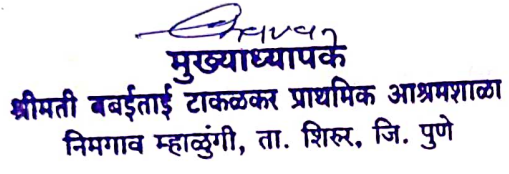 मुख्याध्यापके
श्रीमती बबईताई टाकळकर प्राथमिक आश्रमशाळा
निमगाव म्हाळुंगी, ता. शिरूर, जि. पुणे